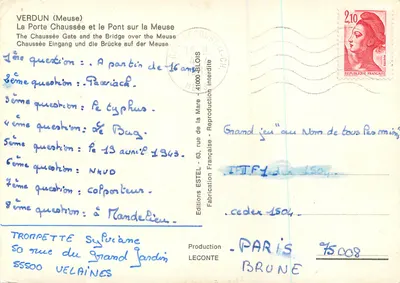 VERDUN (Meuse)
La Porte Chaussée et le Pont sur la Meuse
The Chaussée Gate and the Bridge over the Meuse
Chaussée Eingang und die Brücke auf der Meuse
1ère question : . A partir de 16 ans
2ème question :
3ème question : Le typhus.
4ème question : Le Bug.
5ème question : le 19 avril 1943.
6ème question : NOVO
7ème question : colporteurs.
8ème question : à Mandelieu.
TROMPETTE Sylviane
50 rue du Grand Jardin
55500 VELAINES
Editions ESTEL - 63, rue de la Mare - 41000 BLOIS
Fabrication Française - Reproduction interdite
Production
LECONTE
2,10
Grand jeu " au Nom de tous les miens
TF1
cedex 1504.
- PARIS 75008
BRUNE